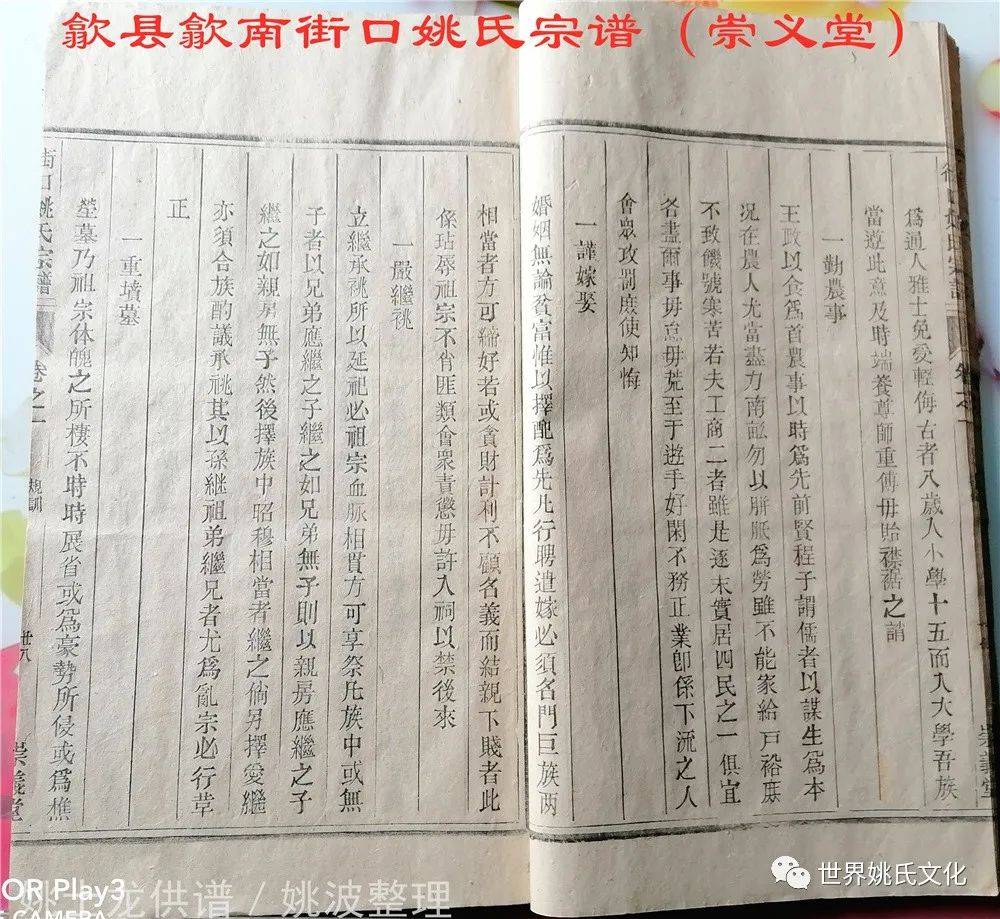 歙县歙南街口姚氏宗谱（崇义堂）
爲通人雅士免受輕侮古者八歲入小學十五而入大學吾族
當遵此意及時端養尊師重傅毋貽襟裾之誚
一勤農事
王政以食爲首農事以時爲先前賢程子謂儒者以謀生爲本
况在農人尤當盡力南畝勿以胼胝爲勞雖不能家給戸裕庶
不致饑號寒苦若夫工商二者雖是逐末實居四民之一俱宜
各盡爾事毋怠毋荒至于遊手好閑不務正業卽係下流之人
會眾攻罰庶使知悔
一謹嫁娶
婚姻無論貧富惟以擇配爲先凡行聘遣嫁必須名門巨族两
相當者方可締好若或貪財計利不顧名義而結親下賤者此
係玷辱祖宗不肖匪類會衆責懲毋許入祠以禁後來
一嚴繼祧
立繼承祧所以延祀必祖宗血脈相貫方可享祭凡族中或無
子者以兄弟應繼之子繼之如兄弟無子則以親房應繼之子
繼之如親房無子然後擇族中昭穆相當者繼之倘另擇愛繼
亦須合族酌議承祧其以孫継祖弟繼兄者尤爲亂宗必行章
正
一重墳墓
塋墓乃祖宗体魄之所棲不時時展省或爲豪勢所侵或爲樵
街口姚氏宗譜
卷之一
規訓
廿八
崇義堂
崇義堂
OR Play3
CAMERA
龙供谱/姚波整理
世界姚氏文化